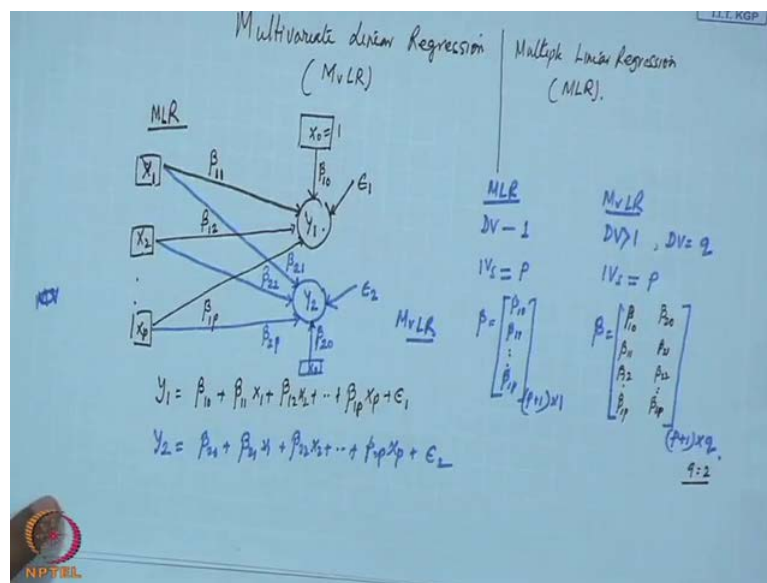 I.I.T. KGP
Multivariate Linear Regression
(MvLR)
Multiple Linear Regression
(MLR).
MLR
X₀ = 1
β₁₀
ϵ₁
X₁
β₁₁
Y₁
X₂
β₁₂
β₂₁
β₂₂
Y₂
ϵ₂
Xₚ
β₁ₚ
β₂ₚ
β₂₀
MvLR
Y₁ = β₁₀ + β₁₁ x₁ + β₁₂ x₂ + ·· + β₁ₚ xₚ + ϵ₁
Y₂ = β₂₀ + β₂₁ x₁ + β₂₂ x₂ + ·· + β₂ₚ xₚ + ϵ₂
MLR
DV – 1
IVs = P
β = [β₁₀
β₁₁
:
β₁ₚ] (p+1)×1
MvLR
DV>1, DV= q
IVs = P
β = [β₁₀ β₂₀
β₁₁ β₂₁
β₁₂ β₂₂
: :
β₁ₚ β₂ₚ] (p+1)×q.
q=2
NPTEL